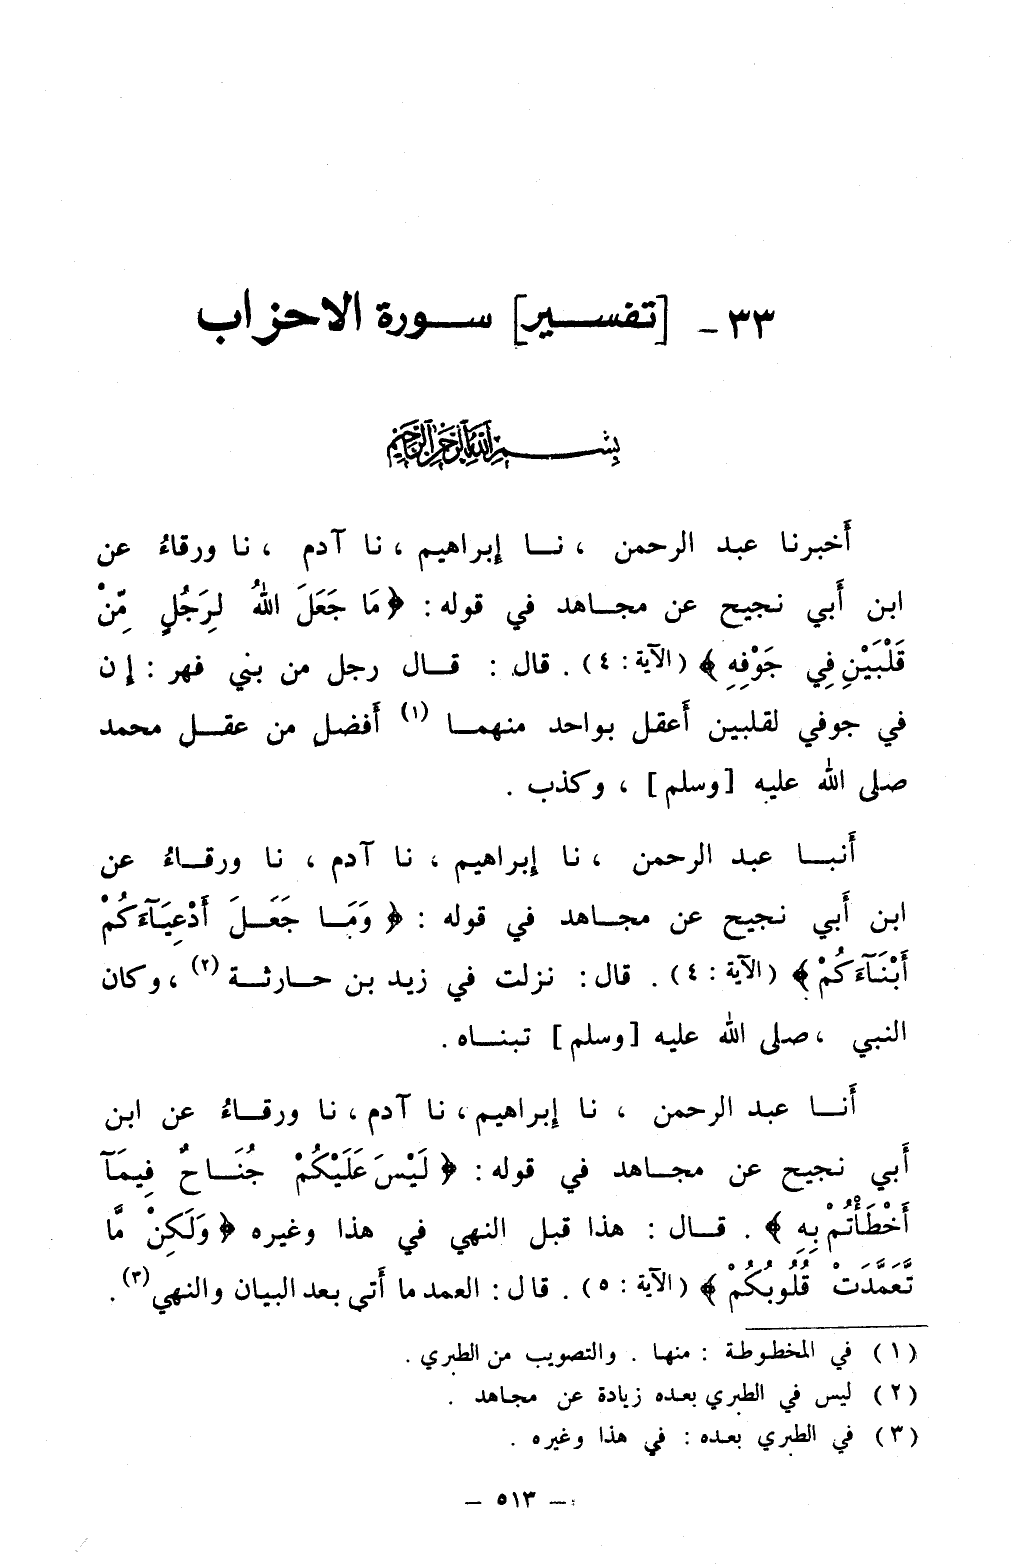 ٣٣ - [تفسير] سورة الاحزاب
بِسْمِ اللهِ الرَّحْمٰنِ الرَّحِيمِ
أَخبرنا عبد الرحمن ، نا إبراهيم ، نا آدم ، نا ورقاءُ عن
ابن أَبي نجيح عن مجاهد في قوله : ﴿ مَا جَعَلَ اللهُ لِرَجُلٍ مِّنْ
قَلْبَيْنِ فِي جَوْفِهِ ﴾ (الآية : ٤) . قال : قال رجل من بني فهر : إن
في جوفي لقلبين أَعقل بواحد منهما (١) أَفضل من عقل محمد
صلى الله عليه [وسلم] ، وكذب .
أَنبا عبد الرحمن ، نا إبراهيم ، نا آدم ، نا ورقاءُ عن
ابن أَبي نجيح عن مجاهد في قوله : ﴿ وَمَا جَعَلَ أَدْعِيَآءَكُمْ
أَبْنَآءَكُمْ ﴾ (الآية : ٤) . قال : نزلت في زيد بن حارثة (٢) ، وكان
النبي ، صلى الله عليه [وسلم] تبناه .
أَنا عبد الرحمن ، نا إبراهيم ، نا آدم ، نا ورقاءُ عن ابن
أَبي نجيح عن مجاهد في قوله : ﴿ لَيْسَ عَلَيْكُمْ جُنَاحٌ فِيمَآ
أَخْطَأْتُمْ بِهِ ﴾ . قال : هذا قبل النهي في هذا وغيره ﴿ وَلَكِنْ مَّا
تَّعَمَّدَتْ قُلُوبُكُمْ ﴾ (الآية : ٥) . قال : العمد ما أَتى بعد البيان والنهي (٣) .
(١) في المخطوطة : منها . والتصويب من الطبري .
(٢) ليس في الطبري بعده زيادة عن مجاهد .
(٣) في الطبري بعده : في هذا وغيره .
- ٥١٣ -